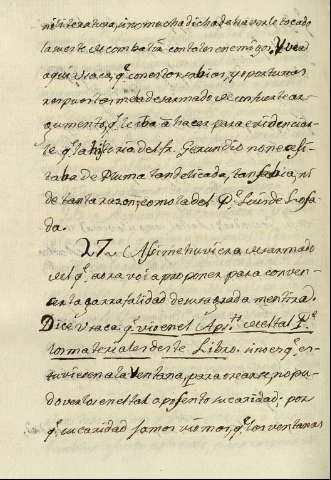 ni literatura, sino mucha dicha de haverle tocado
la suerte de combatir con tales enemigos. Y vea
aqui Vsaca, q.e con estos sabios, y oportunos
respuestos me a desarmado de un fuerte ar-
gumento, q.e le iba á hacer para evidenciar-
le q.e la historia del fr. Gerundio no necesi-
taba de Pluma tan delicada, tan sabia, ni
de tanta razon, como la del P.e Luis de Losa-
da.
27 Assi me huviera desarmado
del q.e aora voi a proponer para conven-
cer la garrafalidad de una tirada mentira.
Dice Vsaca, q.e vio en el Apos.to de el tal P.e
los materiales de este Libro. sino es q.e es-
tuviesen a la Ventana, para orearse, no pu-
do verlos en el tal aposento su caridad; por
q.e su caridad jamas vio mas, q.e las ventanas